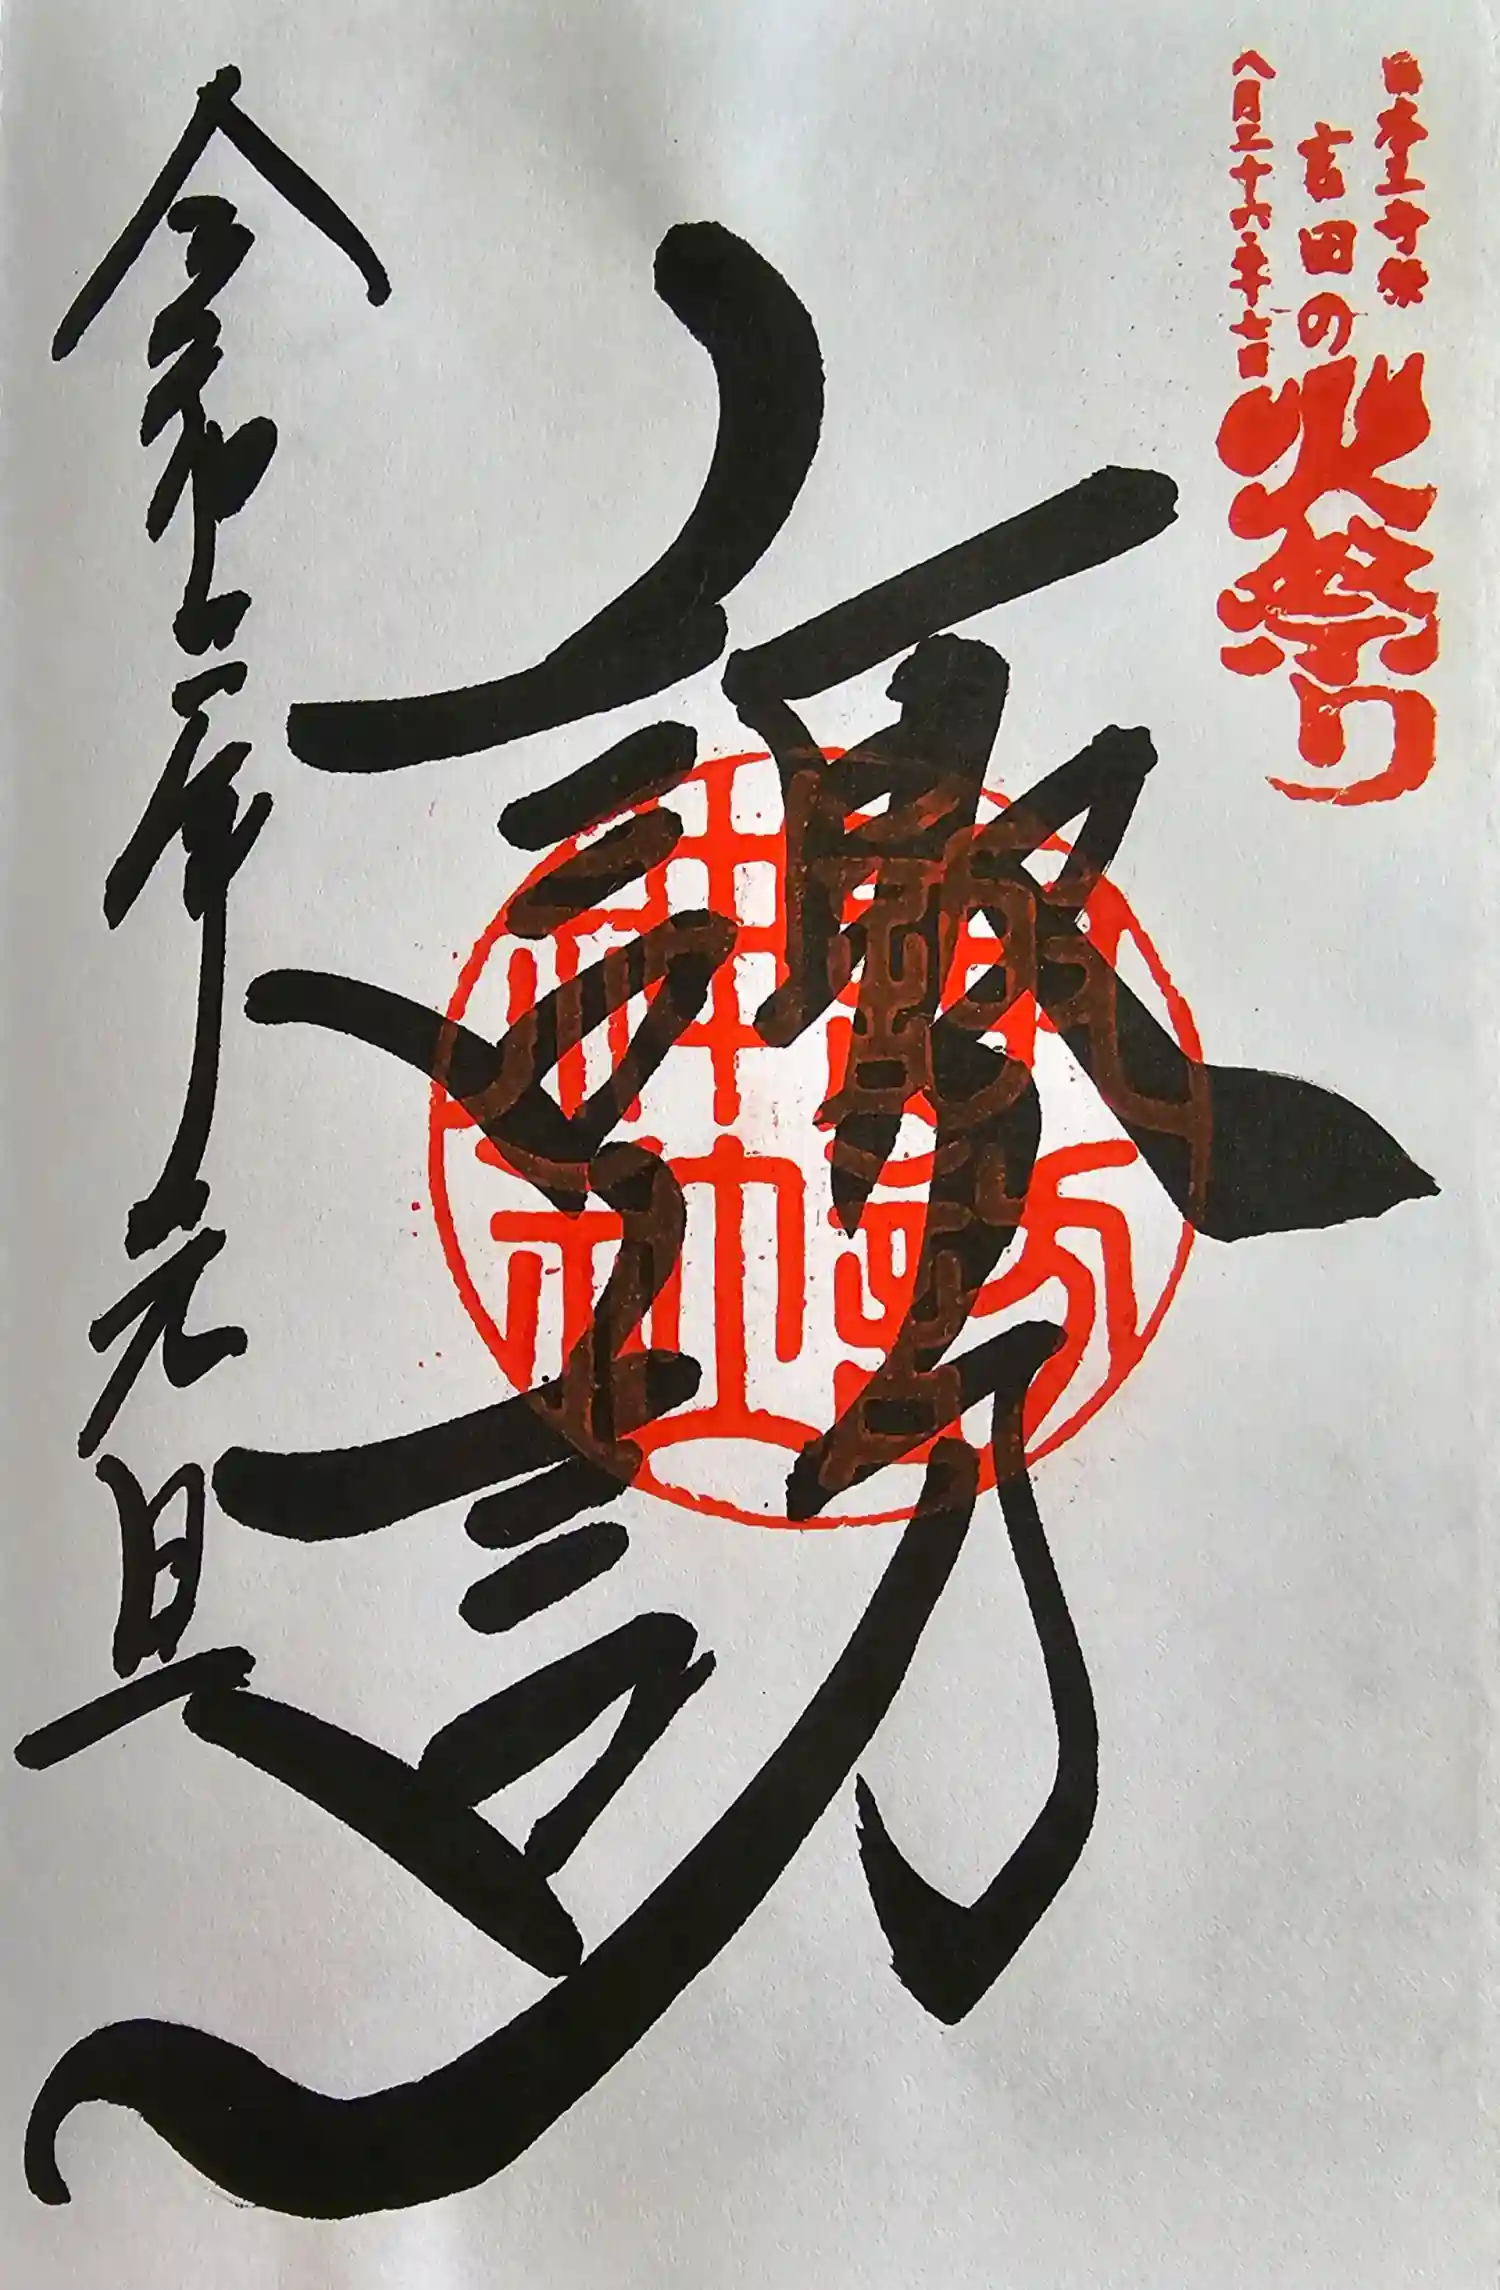 日本三奇祭
吉田の
火祭り
八月二十六・二十七日
諏訪
諏訪
神社
令和 年元旦